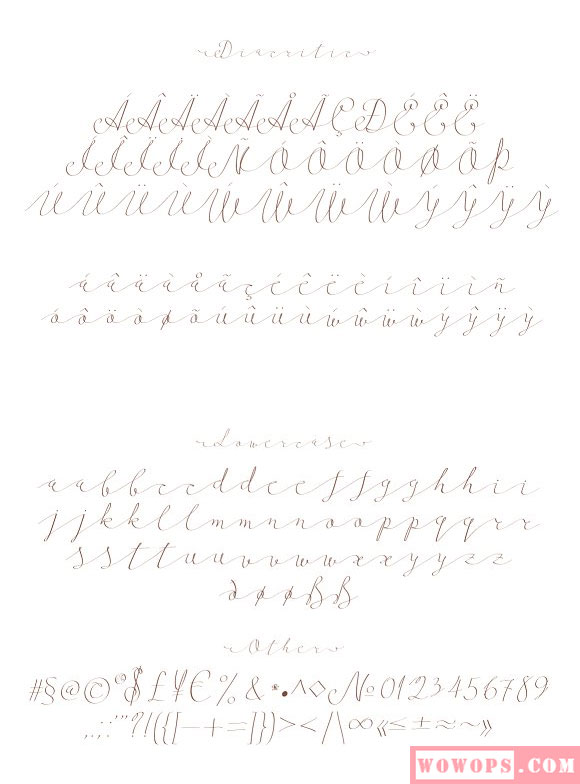 Diacritic
Á Â Ä À Ã Å Ã Ç Ð É Ê Ë
Í Î Ï Ì Ñ Ó Ô Ö Ò Ø Õ Þ
Ú Û Ü Ù Ẃ Ŵ Ẅ Ẁ Ý Ŷ Ÿ Ỳ
á â ä à å ã ç é ê ë è í î ï ì ñ
ó ô ö ò ø õ ú û ü ù ẃ ŵ ẅ ẁ ý ŷ ÿ ỳ
Lowercase
a a b b c c d d e e f f g g h h i i
j j k k l l m m n n o o p p q q r r
s s t t u u v v w w x x y y z z
Other
# § @ © ° $ £ ¥ € % & * • ^ ◊ № 0 1 2 3 4 5 6 7 8 9
WOWOPS.COM